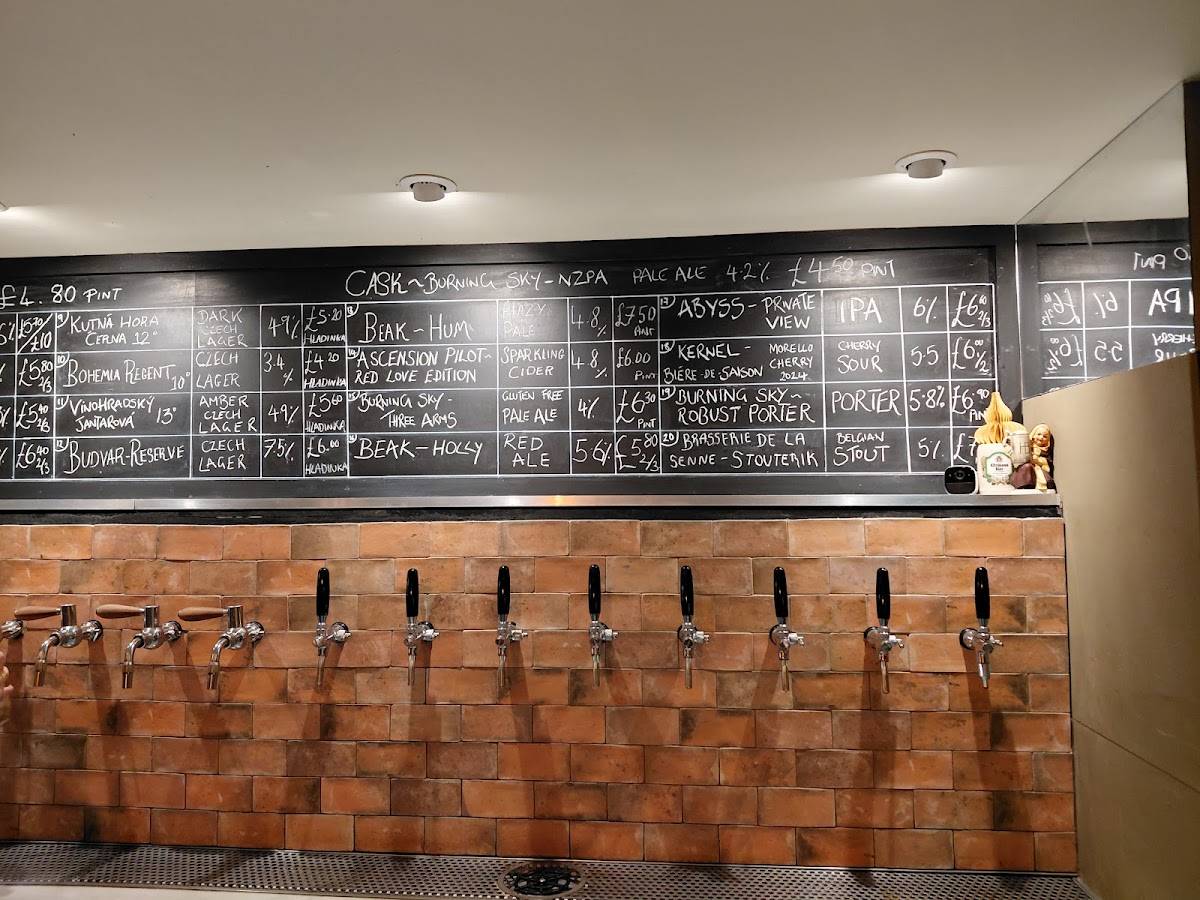 £4.80 PINT
CASK ~ BURNING SKY - NZPA PALE ALE 4.2% £4.50 PINT
£5.70/£10
9 KUTNÁ HORA ČERNA 12° DARK CZECH LAGER 4.9% £5.20 HLADINKA
£5.80 2/3
10 BOHEMIA REGENT 10° CZECH LAGER 3.4% £4.20 HLADINKA
£5.40 2/3
11 VINOHRADSKÝ JANTAROVÁ 13° AMBER CZECH LAGER 4.9% £5.60 HLADINKA
£6.40 2/3
12 BUDVAR-RESERVE CZECH LAGER 7.5% £6.00 HLADINKA
BEAK ~ HUM HAZY PALE 4.8% £7.50 PINT
ASCENSION PILOT~ RED LOVE EDITION SPARKLING CIDER 4.8% £6.00 PINT
BURNING SKY - THREE ARMS GLUTEN FREE PALE ALE 4% £6.30 PINT
BEAK - HOLLY RED ALE 5.6% £5.80 2/3
17 ABYSS - PRIVATE VIEW IPA 6% £6.60 2/3
18 KERNEL - BIÈRE-DE-SAISON MORELLO CHERRY 2024 CHERRY SOUR 5.5 £6 1/2
19 BURNING SKY ~ ROBUST PORTER PORTER 5.8% £6.90 PINT
20 BRASSERIE DE LA SENNE - STOUTERIK BELGIAN STOUT 5%